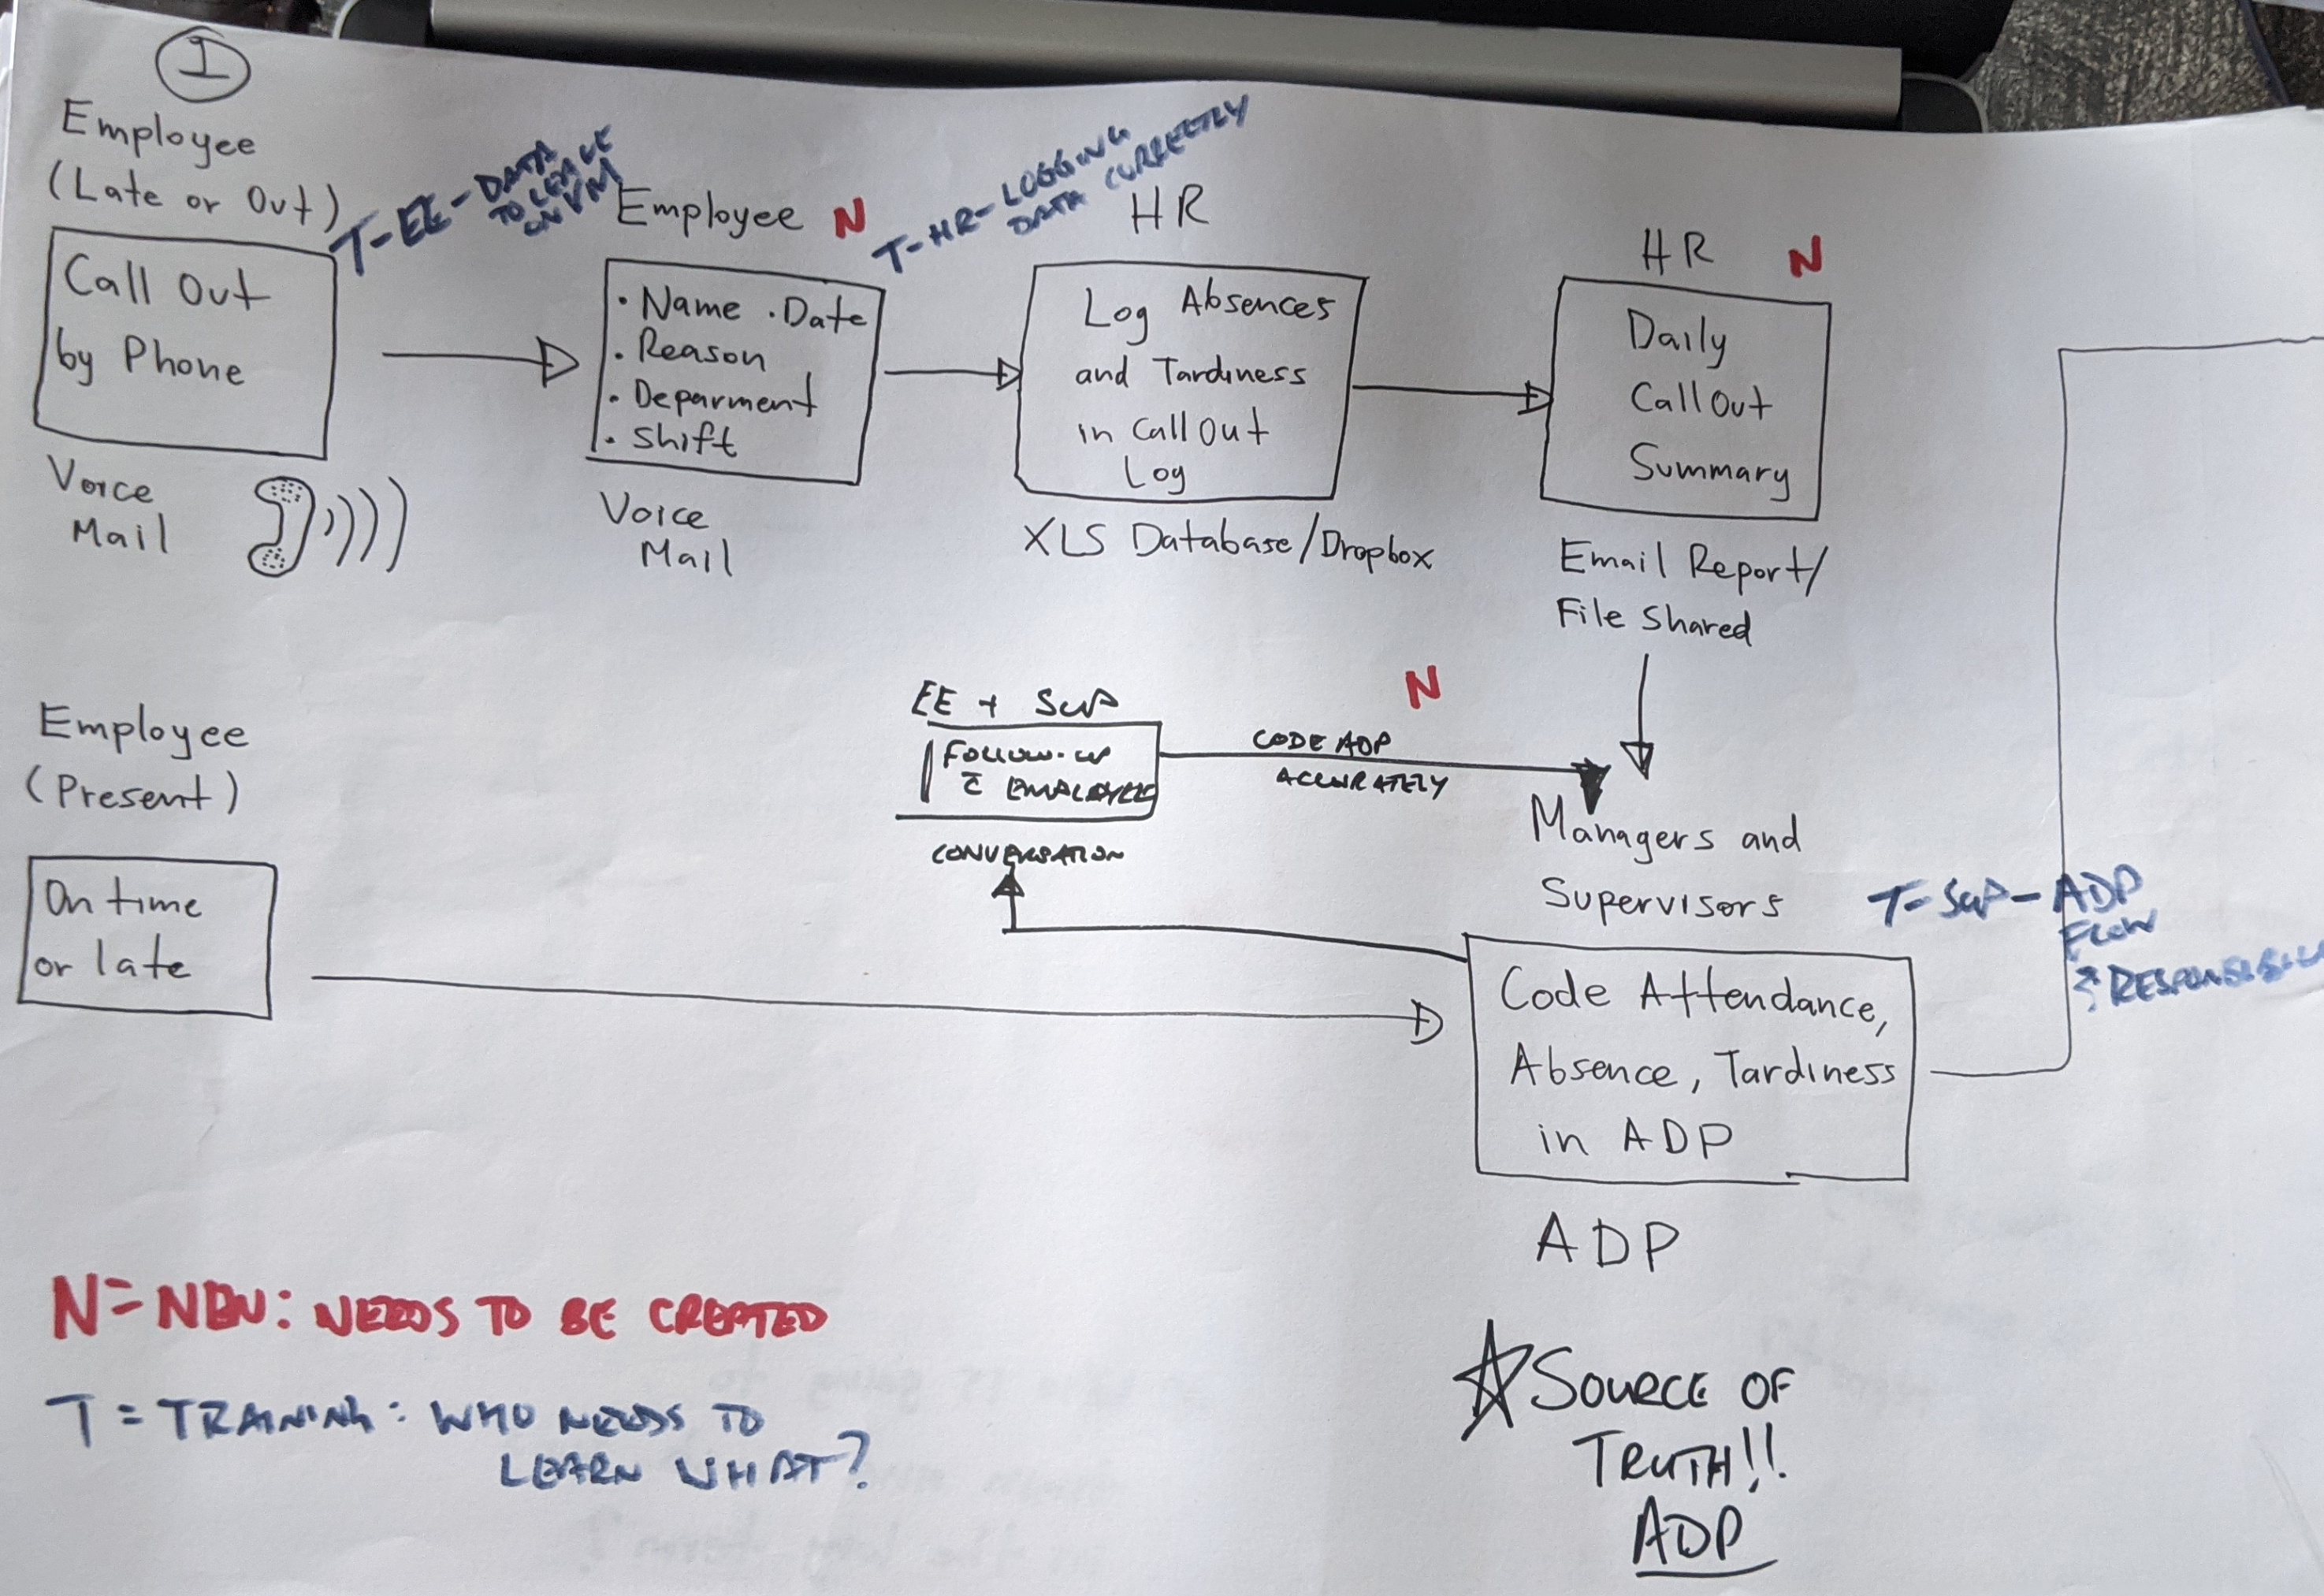 1
Employee
(Late or Out)
Call Out
by Phone
Voice
Mail
T-EE-DATA
TO LEAVE
ON VM
Employee N
• Name • Date
• Reason
• Deparment
• Shift
Voice
Mail
T-HR-LOGGING
DATA CORRECTLY
HR
Log Absences
and Tardiness
in Call Out
Log
XLS Database/Dropbox
HR N
Daily
Call Out
Summary
Email Report/
File Shared
EE + SUP
FOLLOW-UP
c̄ EMPLOYEE
CONVERSATION
N
CODE ADP
ACCURATELY
Employee
(Present)
On time
or late
Managers and
Supervisors
Code Attendance,
Absence, Tardiness
in ADP
ADP
T-SUP-ADP
FLOW
N=NEW: NEEDS TO BE CREATED
T=TRAINING: WHO NEEDS TO
LEARN WHAT?
☆SOURCE OF
TRUTH!!
ADP